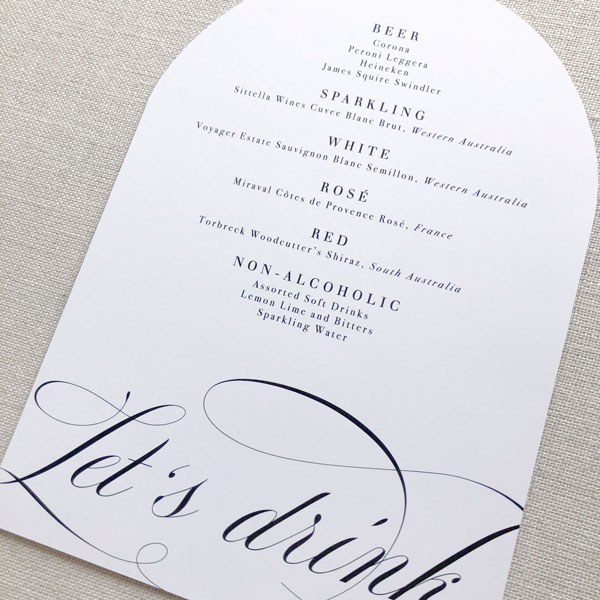 BEER
Corona
Peroni Leggera
Heineken
James Squire Swindler
SPARKLING
Sittella Wines Cuvee Blanc Brut, Western Australia
WHITE
Voyager Estate Sauvignon Blanc Semillon, Western Australia
ROSÉ
Miraval Côtes de Provence Rosé, France
RED
Torbreck Woodcutter's Shiraz, South Australia
NON-ALCOHOLIC
Assorted Soft Drinks
Lemon Lime and Bitters
Sparkling Water
Let's drink